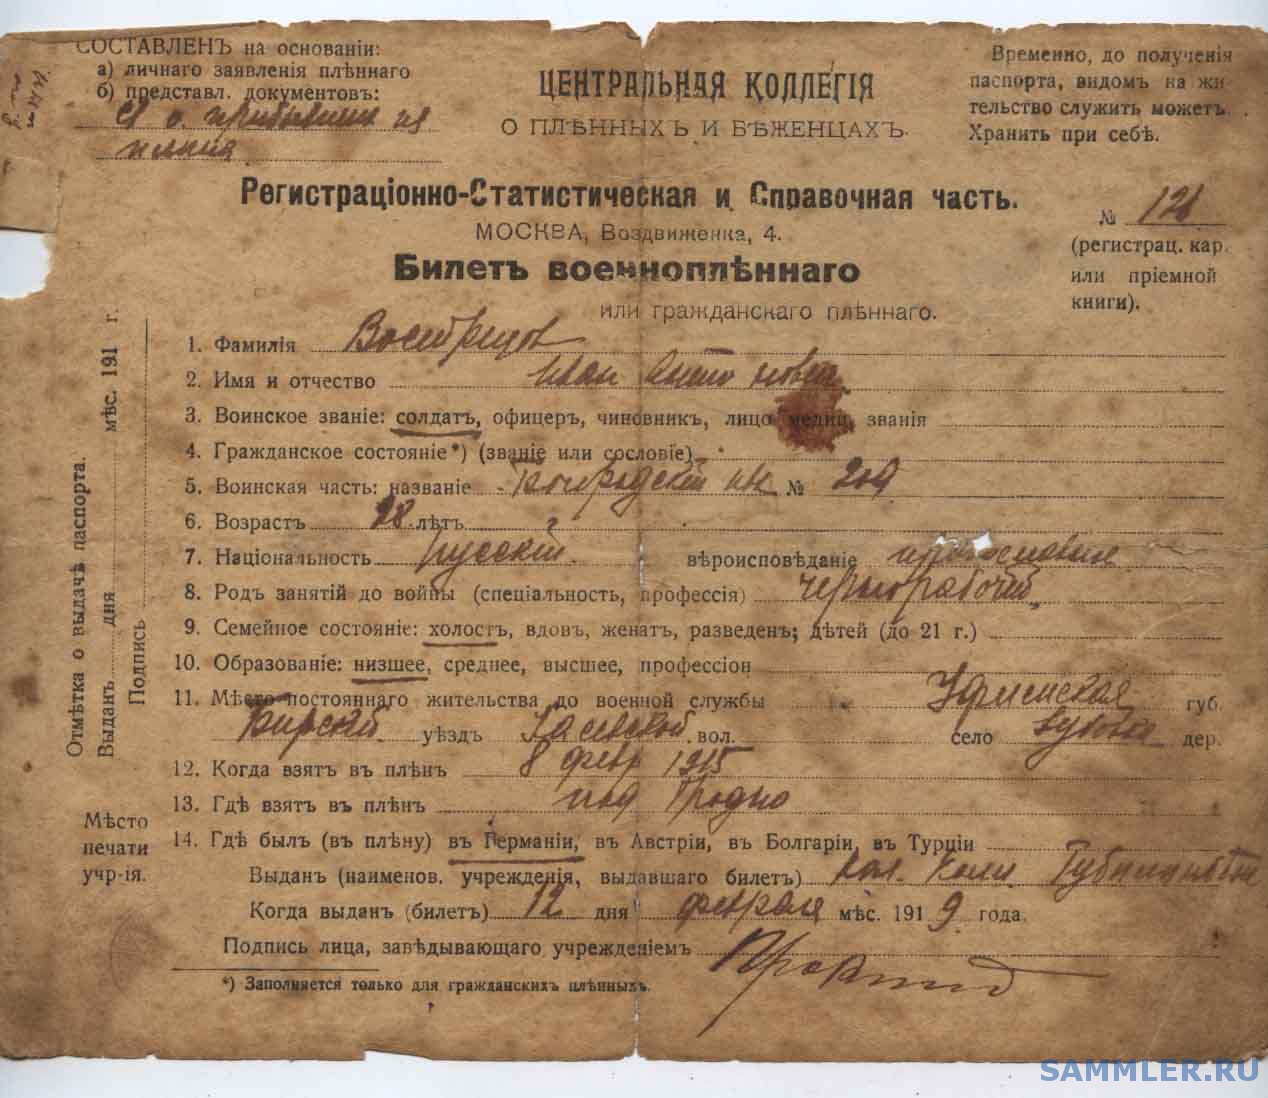 СОСТАВЛЕНЪ на основаніи:
а) личнаго заявленія плѣннаго
б) представл. документовъ:
ЦЕНТРАЛЬНАЯ КОЛЛЕГІЯ
О ПЛѢННЫХЪ И БѢЖЕНЦАХЪ.
Временно, до полученія
паспорта, видомъ на жи-
тельство служить можетъ.
Хранить при себѣ.
Регистраціонно-Статистическая и Справочная часть.
МОСКВА, Воздвиженка, 4.
№ 121
(регистрац. кар.
или пріемной
книги).
Билетъ военноплѣннаго
или гражданскаго плѣннаго.
1. Фамилія Вострецов
2. Имя и отчество Иван
3. Воинское званіе: солдатъ, офицеръ, чиновникъ, лицо медиц. званія
4. Гражданское состояніе*) (званіе или сословіе)
5. Воинская часть: названіе № 209
6. Возрастъ 28 лѣтъ
7. Національность русскій вѣроисповѣданіе
8. Родъ занятій до войны (спеціальность, профессія) чернорабочій
9. Семейное состояніе: холостъ, вдовъ, женатъ, разведенъ; дѣтей (до 21 г.)
10. Образованіе: низшее, среднее, высшее, профессіон
11. Мѣсто постояннаго жительства до военной службы Уфимская губ.
Бирскій уѣздъ вол. село дер.
12. Когда взятъ въ плѣнъ 8 февр 1915
13. Гдѣ взятъ въ плѣнъ под Гродно
14. Гдѣ былъ (въ плѣну) въ Германіи, въ Австріи, въ Болгаріи, въ Турціи
Выданъ (наименов. учрежденія, выдавшаго билетъ)
Когда выданъ (билетъ) 12 дня февраля мѣс. 1919 года.
Подпись лица, завѣдывающаго учрежденіемъ
*) Заполняется только для гражданскихъ плѣнныхъ.
Отмѣтка о выдачѣ паспорта.
Выданъ дня мѣс. 191 г.
Подпись
Мѣсто
печати
учр-ія.
SAMMLER.RU